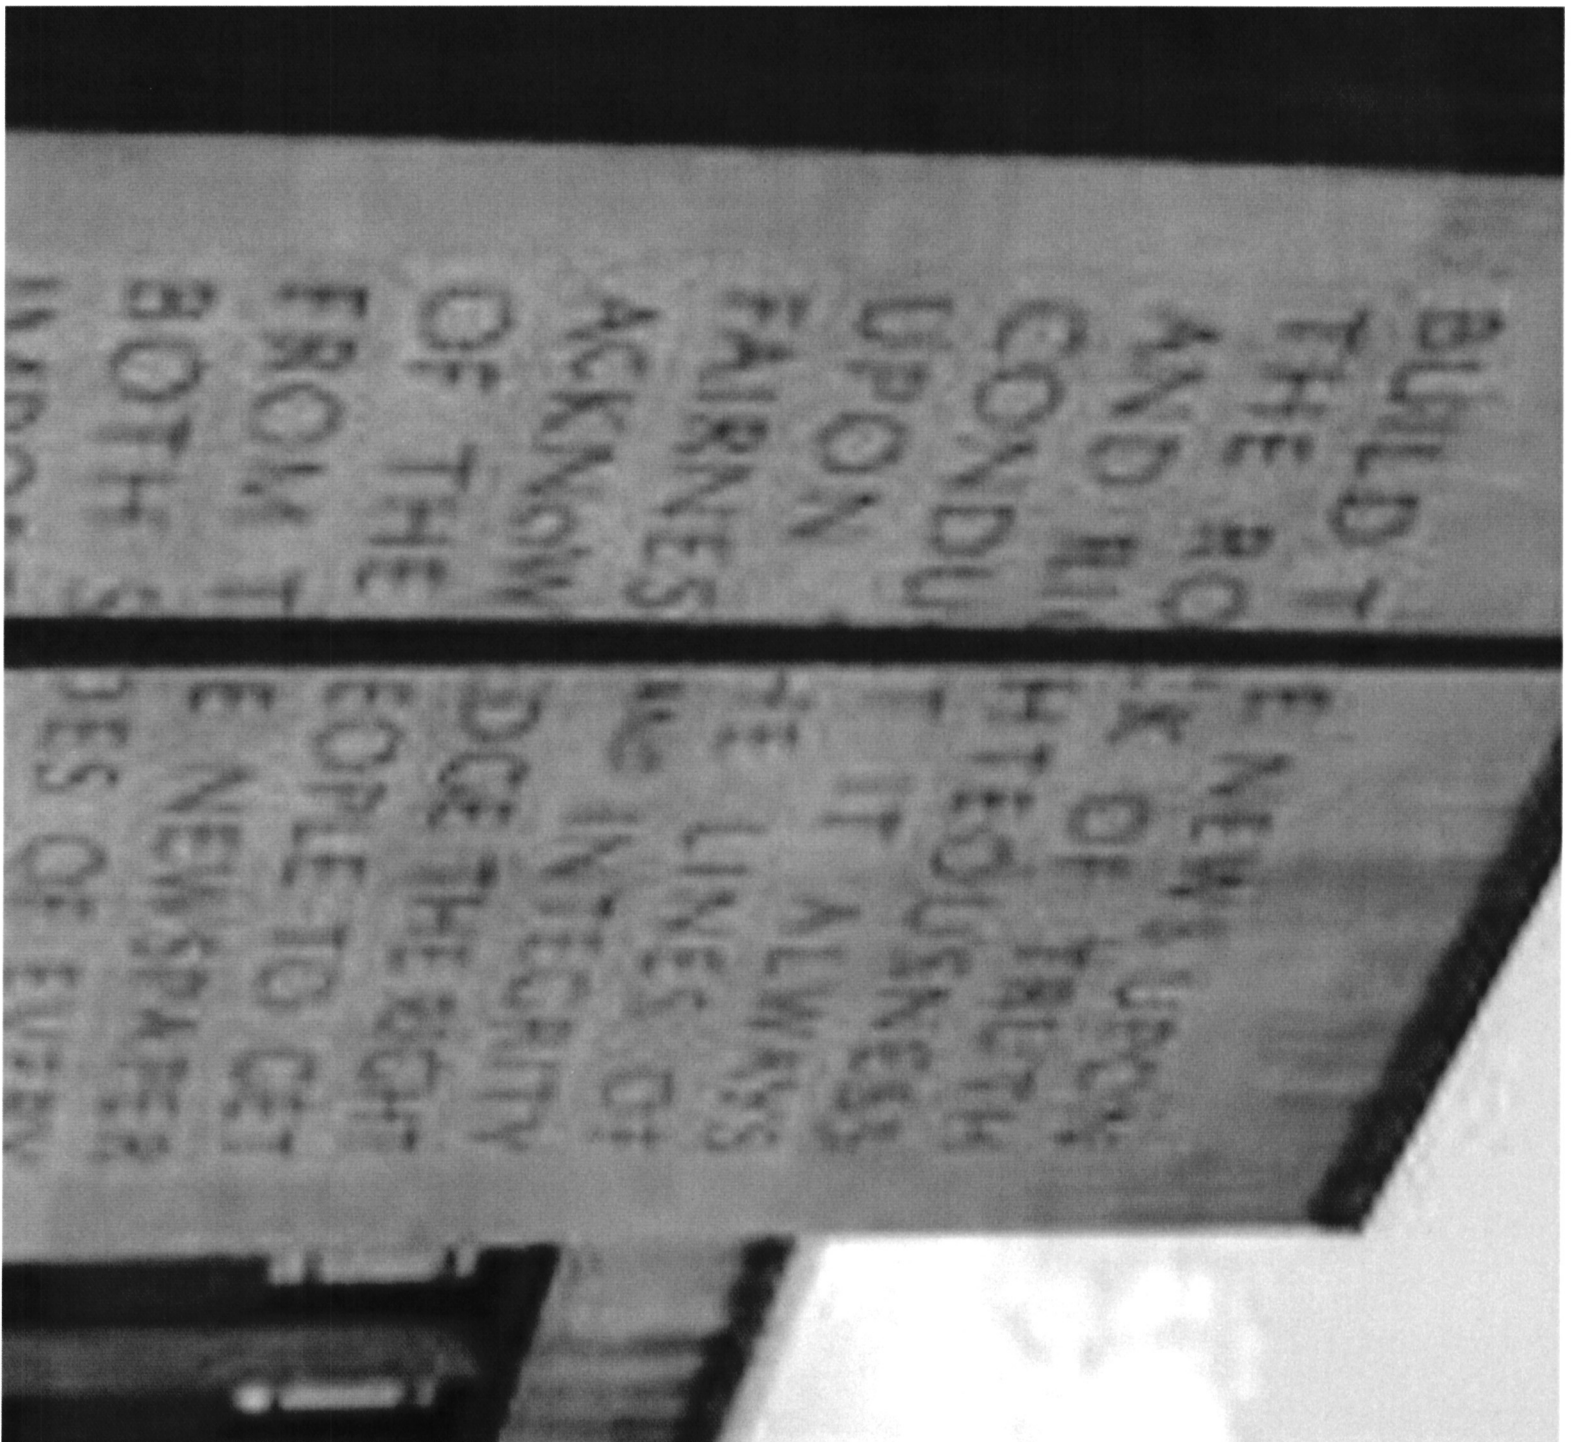 BUILD THE NEWS UPON
THE ROCK OF TRUTH
AND RIGHTEOUSNESS
CONDUCT IT ALWAYS
UPON THE LINES OF
FAIRNESS AND INTEGRITY
ACKNOWLEDGE THE RIGHT
OF THE PEOPLE TO GET
FROM THE NEWSPAPER
BOTH SIDES OF EVERY